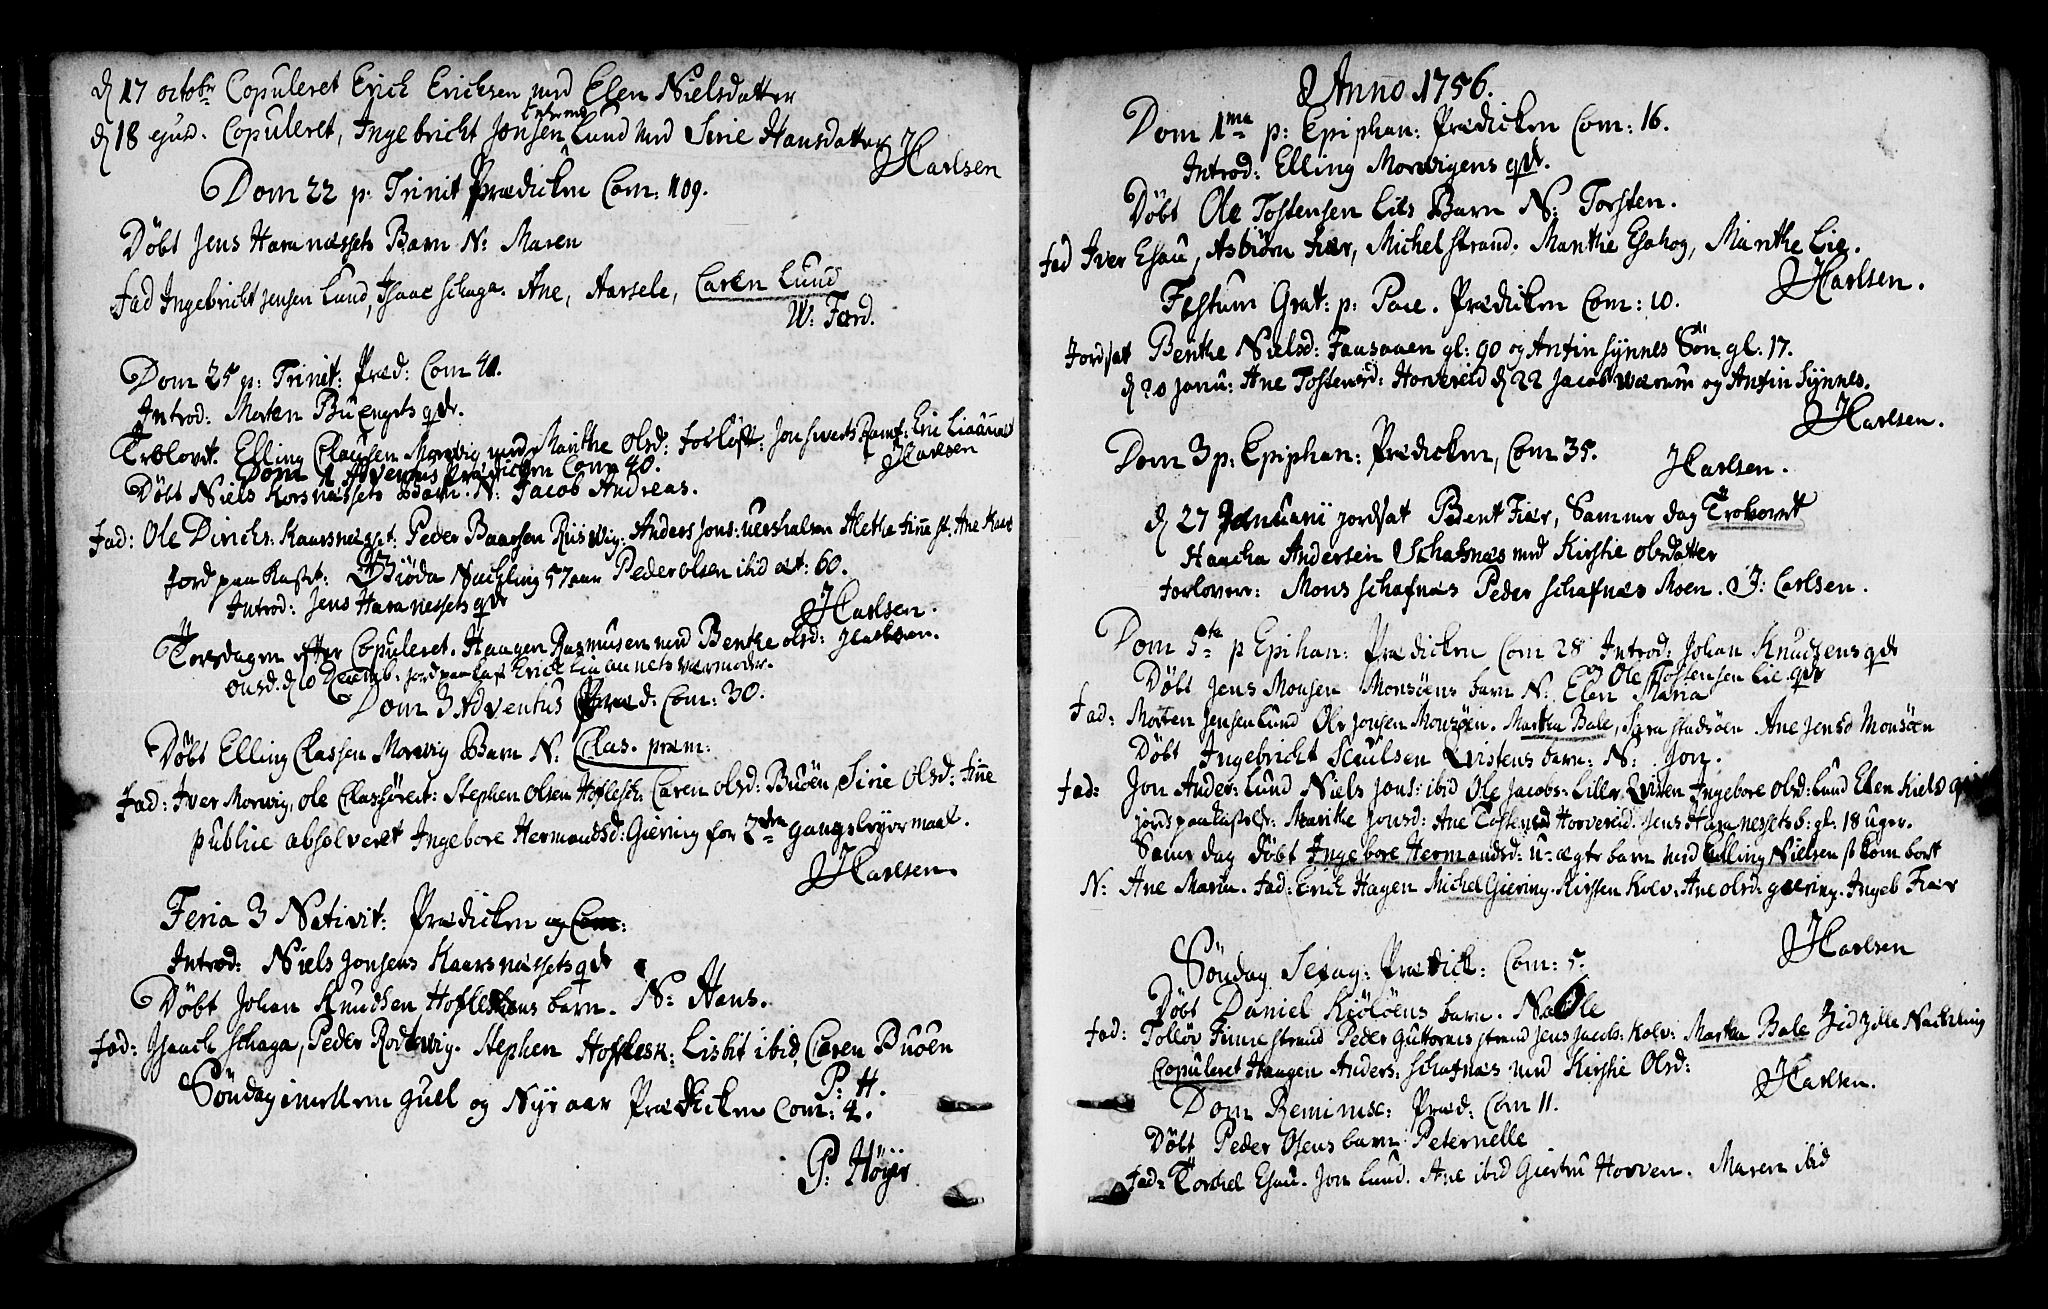 d 17 octobr Copuleret Erich Erichsen med Elen Nielsdatter
d 18 ejusd. Copuleret, Ingebricht Jonsen Lund med Sirie Hansdatter
JCarlsen
Dom 22 p: Trinit Prædicken Com: 109.
Döbt Jens Haranæssets Barn N: Maren
Fad Ingebricht Jensen Lund, Isaac Schaga. Ane, Aarsele, Caren Lund
W: Færd.
Dom 25 p: Trinit: Præd: Com 40.
Introd: Morten Buengets qdr.
Trolovt. Elling Clausen Morvig med Marithe Olsd: Forløft: Jon
JCarlsen
Dom 1 Adventus Prædicken Com 40.
Döbt Niels Korsnæssets Barn. N: Jacob Andreas.
Fad: Ole Dirichs: Kaarsnæsset: Peder Baarsen Riisvig: Anders Jons: Alethe Ane
Jord paa Kastet: Nackling 57 aar Peder Olsen ibid æt: 60.
Introd: Jens Haranessets qdr
JCarlsen.
Torsdagen efter Copuleret. Haagen Rasmusen med Benthe Olsd:
Onsd. d 10 Decemb: jord paa Kast Erich Liaanets værmoder.
Dom 3 Adventus Præd: Com: 30.
Döbt Elling Classen Morvig Barn N: Clas. præm:
Fad: Iver Morvig, Ole Classøreit: Stephen Olsen Hoflesch: Caren Olsd: Buöen, Sirie Olsd: Finne
publice absolveret Ingebore Hermandsd: Giering for 2den gangs leyermaal.
JCarlsen.
Feria 3 Nativit: Prædicken og Com:
Introd: Niels Jonsens Kaarsnæssets qdr
Döbt Johan Knudsen Hofleskens barn. N: Hans.
Fad: Isaach Schaga, Peder Rodtevig. Stephen Hoflesk: Lisbit ibid, Caren Buöen
P: H.
Söndag imellem Guel og Nyt aar Prædicken Com: 4.
P: Höyer
Anno 1756.
Dom 1ma p: Epiphan: Prædicken Com: 16.
Introd: Elling Morvigens qdr.
Döbt Ole Tostensen Lies Barn N: Torsten.
Fad Iver Esau, Asbiörn Fiær, Michel strand. Marithe Esahog, Marithe Lie.
JCarlsen.
Festum Grat: p: Pace. Prædicken Com: 10.
Jordsat Benthe Nielsd: Fausaaen gl: 90 og Anfin Synnes Sön gl: 17.
d 20 Janu: Ane Tostensd: Horvereid d 22 Jacob Wærum og Anfin Synnes.
JCarlsen.
Dom 3 p: Epiphan: Prædicken, Com 35.
JCarlsen.
d 27 Januarii jordsat Bent Fiær, Samme dag Trolovet
Haacha Andersen Schafnæs med Kirstie Olsdatter
Forlovere: Mons Schafnæs Peder Schafnæs Moen. J: Carlsen.
Dom 5ta p Epihan: Prædicken Com 28 Introd: Johan Knudsens qdr
og Ole Tostensen Lie qdr
Döbt Jens Monsen Monsöens barn N: Elen Maria
Fad: Morten Jensen Lund Ole Jonsen Monsöen. Martha Bale, Sara Stadsöen Ane Jensd Monsöen
Döbt Ingebricht Sculsen Qvistens barn: N: Jon.
Fad: Jon Anders: Lund Niels Jons: ibid Ole Jacobs: Lille Ingebore Olsd: Lund Elen
jords paakastelse: Marithe Jonsd: Ane Tostensd Horvereid: Jens Haranessets b: gl: 18 uger.
Samme dag döbt Ingebore Hermandsd: u-ægte barn med Elling Nielsen
N: Ane Maria. Fad: Erich Hagen Michel Giering. Kirsten Kolv: Ane Olsd: Giering. Ingeb Fiær
JCarlsen
Söndag Sexag: Prædick: Com: 5.
Döbt Daniel Kiölöens barn. N: Ole
Fad: Tollöv Finne strand Peder Guttormstrand Jens Jacobs: Kolv: Martha Bale Zidzille Nackling
Copuleret Haagen Anders: Schafnæs med Kirstie Olsd:
JCarlsen.
Dom Reminisc: Præd: Com 11.
Döbt Peder Osens barn Peternelle
Fad: Torchel Esau. Jon Lund. Ane ibid Giertru Horven. Maren ibid